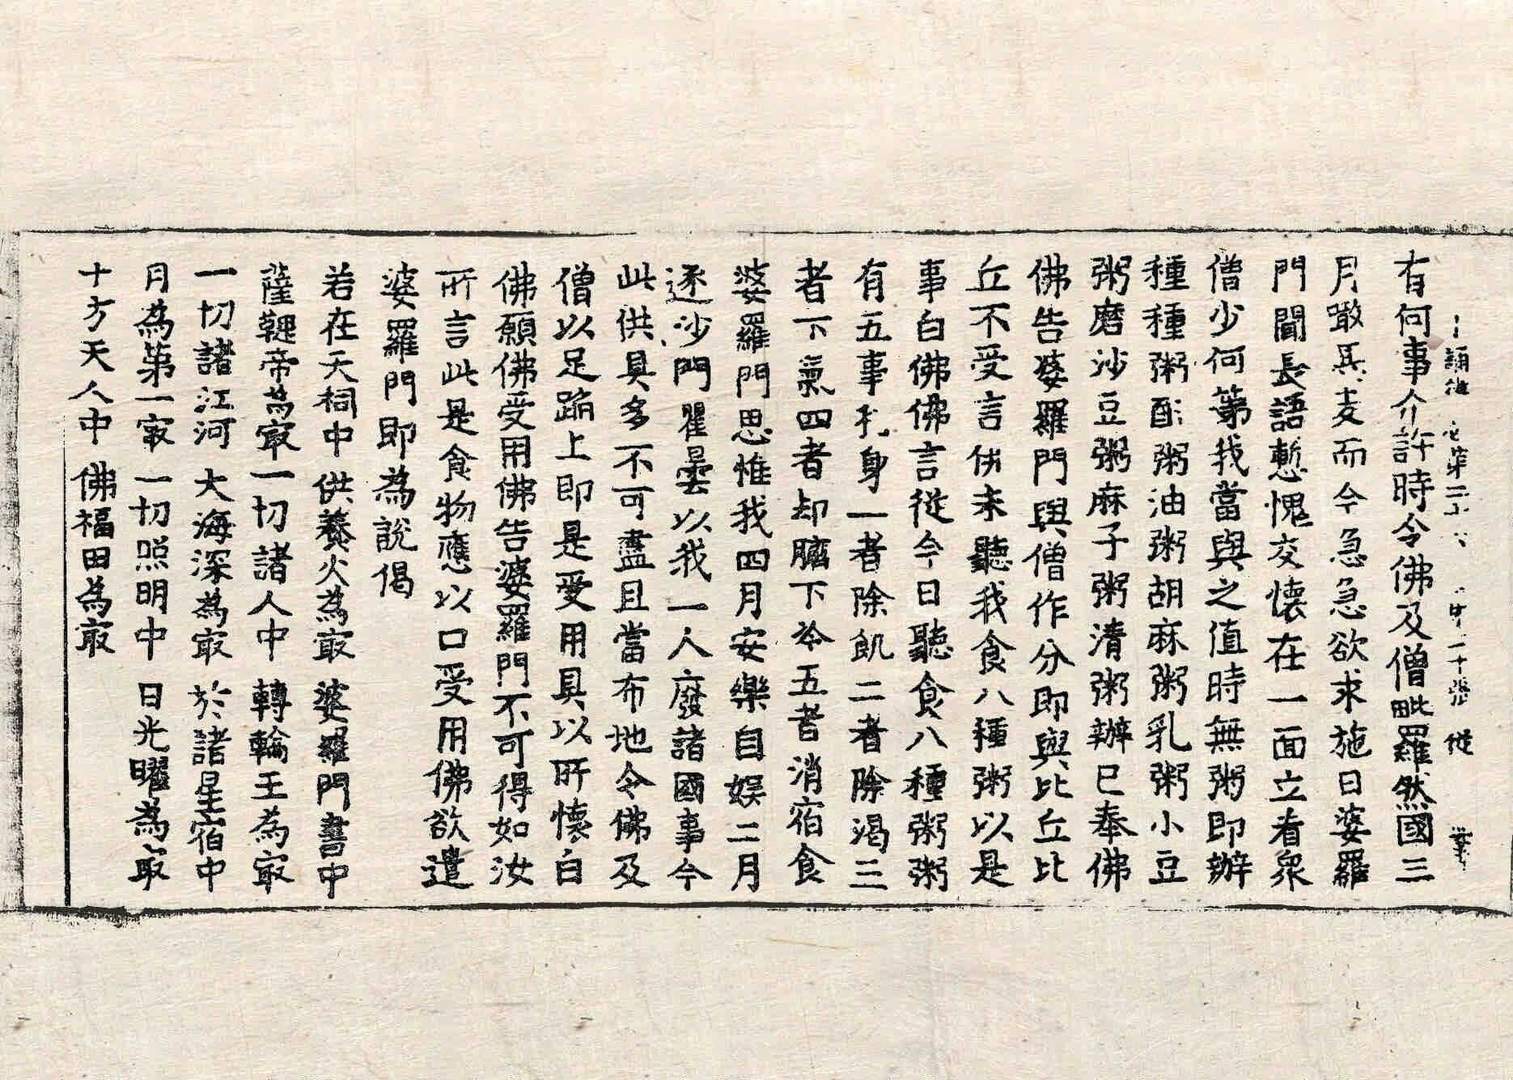 誦律 第二十六 第二十張 從 業
有何事介許時令佛及僧毗羅然國三
月噉馬麦而今急急欲求施日婆羅
門聞長語慙愧交懷在一面立看衆
僧少何等我當與之值時無粥即辦
種種粥酥粥油粥胡麻粥乳粥小豆
粥磨沙豆粥麻子粥清粥辦已奉佛
佛告婆羅門與僧作分即與比丘比
丘不受言佛未聽我食八種粥以是
事白佛佛言從今日聽食八種粥粥
有五事利身一者除飢二者除渴三
者下氣四者却臍下冷五者消宿食
婆羅門思惟我四月安樂自娱二月
逐沙門瞿曇以我一人廢諸國事今
此供具多不可盡且當布地令佛及
僧以足蹈上即是受用具以所懷白
佛願佛受用佛告婆羅門不可得如汝
所言此是食物應以口受用佛欲遣
婆羅門即為說偈
若在天祠中 供養火為冣 婆羅門書中
薩鞞帝為冣 一切諸人中 轉輪王為冣
一切諸江河 大海深為冣 於諸星宿中
月為第一冣 一切照明中 日光曜為冣
十方天人中 佛福田為冣